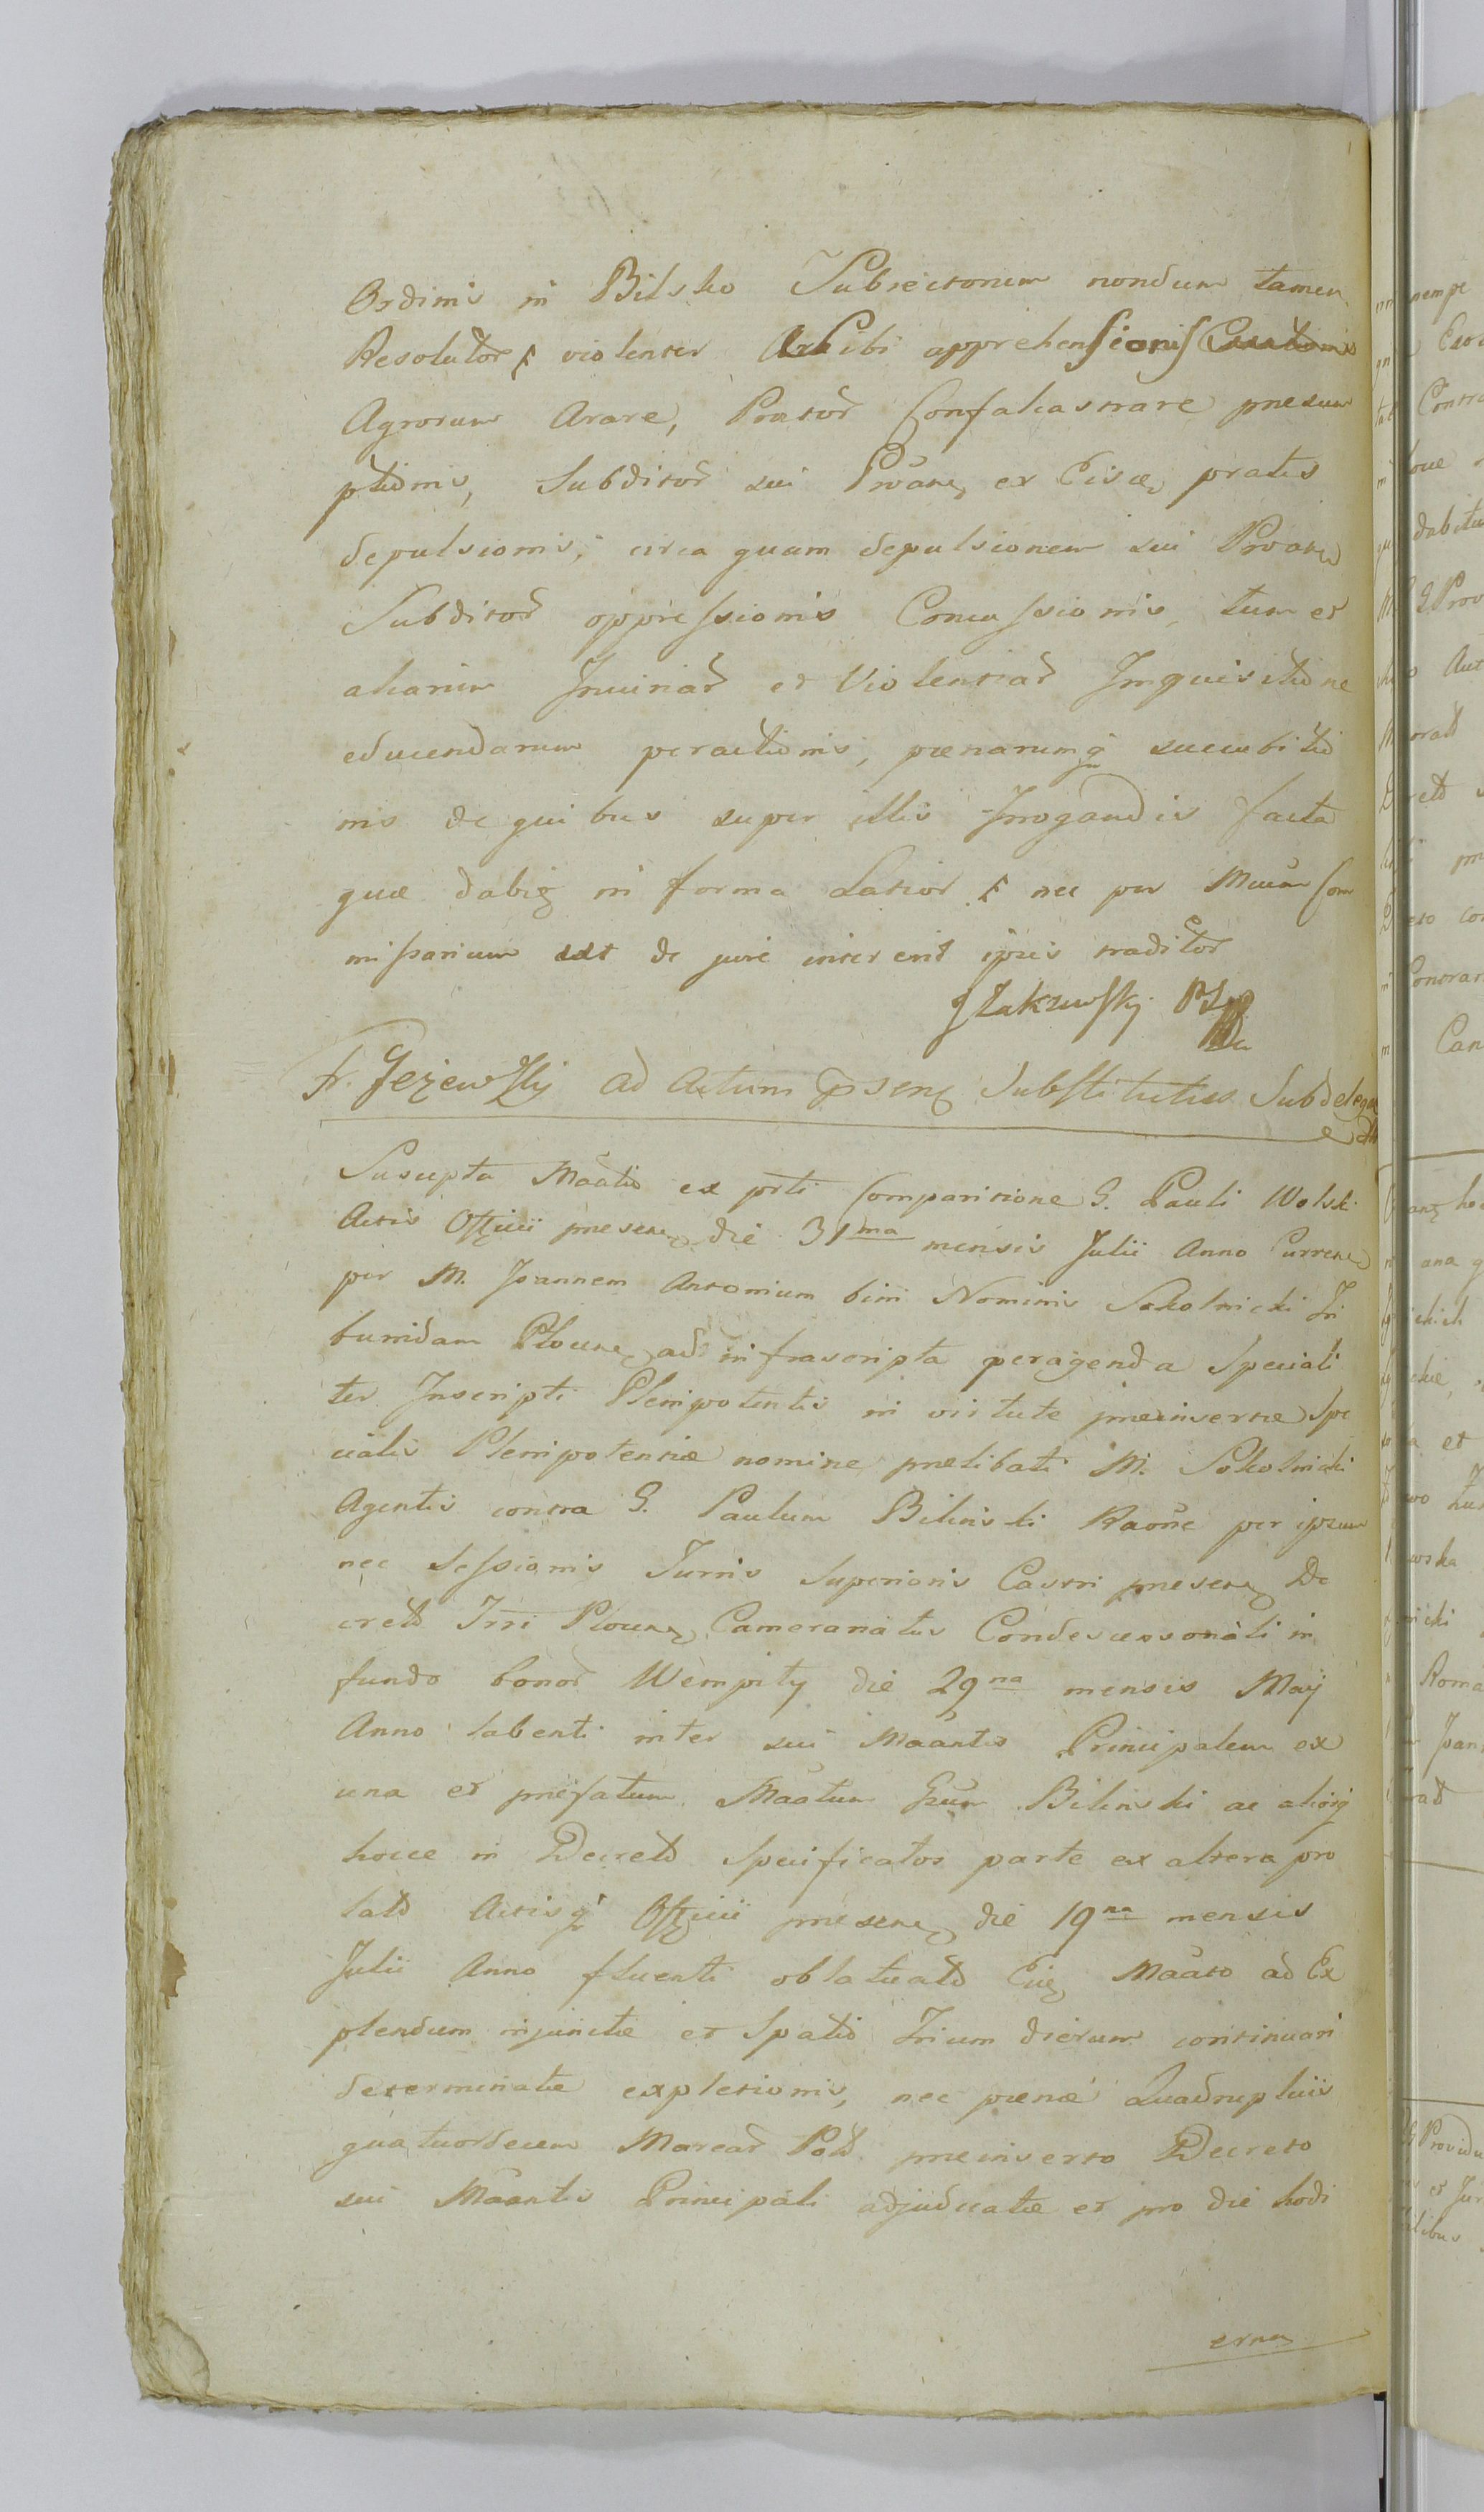 Ordinis in Bilsko Subsectorum nondum tamen
Resolutor violenter sibi apprehensionis
Agrorum Arare, Prator Confalcastrare præsum
ptionis, Subditor sui Proane ex Eisce pratis
depulsionis, circa quam depulsionem sui Proane
Subditor oppressionis Concussionis, tum et
aliarum Injuriar et Violentiar Inquisitione
educendarum peractionis, pœnarumq succubitio
nis de quibus super illis Irrogandis facta
quæ dabit in forma Latior nec per Muum Com
missarium de jure intererit ipsis traditor

Fr. Jeżewski ad Actum præsens Substitutus Subdelega

Suscepta Maatio ex prti Comparitione G. Pauli Wolski
Actis Officii presen die 31ma mensis Julii Anno Curren
per M. Joannem Antonium bini Nominis Sokolnicki Tri
bunidam Plocen ad infrascripta peragenda Speciali
ter Inscripti Plenipotentis in virtute præinsertæ Spe
cialis Plenipotentiæ nomine prælibati M. Sokolnicki
Agentis contra G. Paulum Bilinski Raone per ipsum
nec Sessionis Turris Superioris Castri presen De
creto Trri Plocen Cameranatus Condescensoriali in
fundo bonor Wempity die 29na mensis Maij
Anno labenti inter sui Maantis Principalem ex
una et præfatum Maatum Gsum Bilinski ac aliosq
hocce in Decreto Specificatos parte ex altera pro
lato Actisq Officii presen die 19na mensis
Julii Anno fluenti oblatuato Eiq Maato ad Ex
plendum injunctæ et Spatio Trium dierum continuari
determinatæ expletionis, nec pœnæ Quadruplicis
quatuordecem Marcar Pold præinserto Decreto
sui Maantis Principali adjudicatæ et pro die hodi
erna